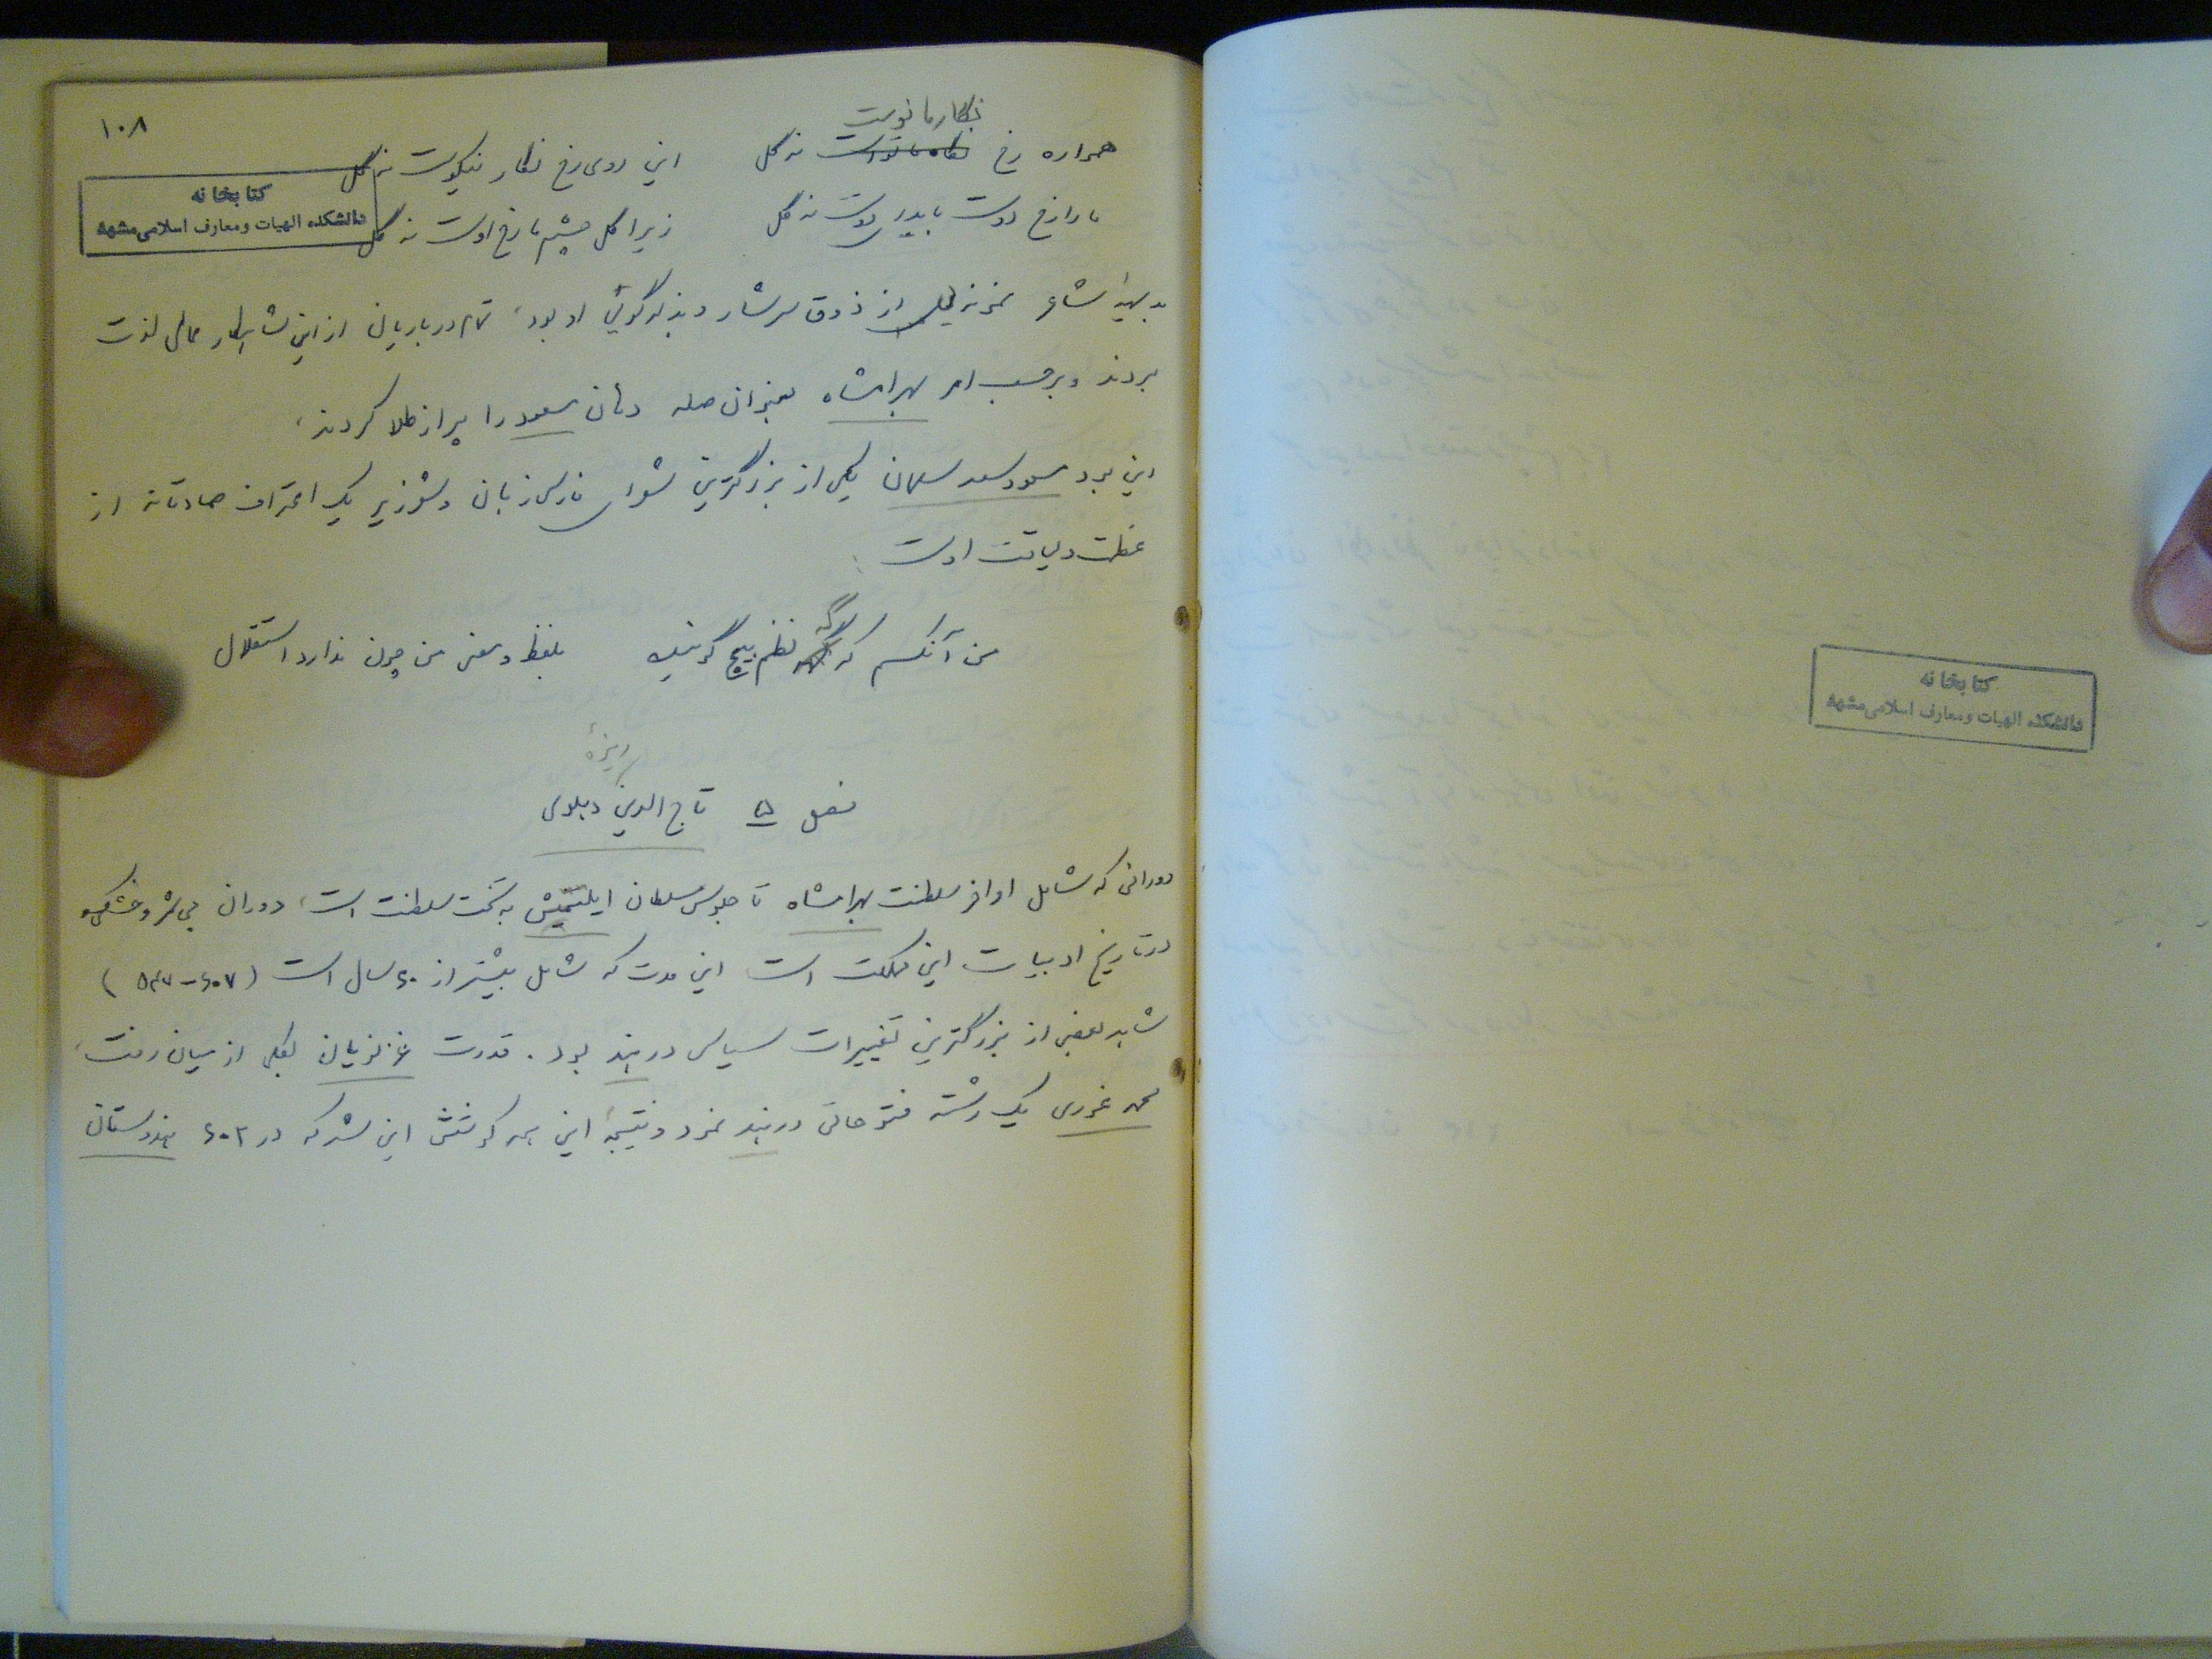 ۱۰۸
نگار ما نوست
همواره رخ نه گل این روی رخ نگار نیکوست نه گل
ما را رخ دوست باید ای دوست نه گل زیرا گل چشم ما رخ اوست نه گل
کتابخانه
دانشکده الهیات و معارف اسلامی مشهد
بدیهه شاعر نمونه از ذوق سرشار و بذله گوئی او بود، تمام درباریان از این عالی لذت
بردند و برحسب امر بهرامشاه بعنوان صله دهان مسعود را پر از طلا کردند،
این بود مسعود سعد سلمان یکی از بزرگترین شعرای فارسی زبان و شعر زیر یک اعتراف صادقانه از
عظمت و لیاقت اوست :
من آنکسم که گه نظم هیچ گوینده بلفظ و معنی من چون ندارد استقلال
ریزهٔ
فصل ۵ تاج الدین دهلوی
دورانی که شامل اواخر سلطنت بهرامشاه تا جلوس سلطان ایلتتمش به تخت سلطنت است، دوران بی ثمر و خشکی
در تاریخ ادبیات این مملکت است این مدت که شامل بیشتر از ۶۰ سال است (۶۰۷-۵۴۷)
شاهد بعضی از بزرگترین تغییرات سیاسی در هند بود. قدرت غزنویان بکلی از میان رفت،
محمد غوری یک رشته فتوحاتی در هند نمود و نتیجهٔ این همه کوشش این شد که در ۶۰۲ هندوستان
کتابخانه
دانشکده الهیات و معارف اسلامی مشهد